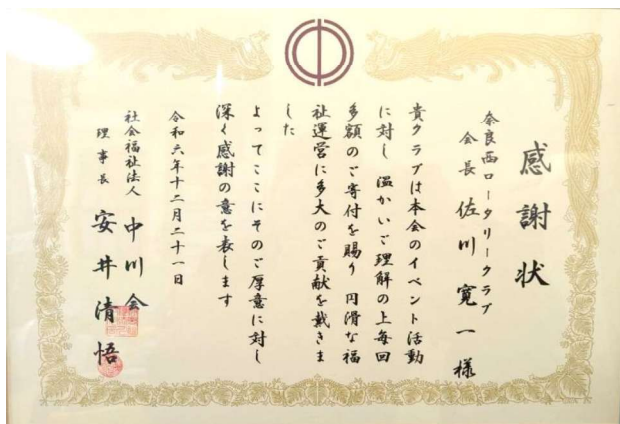 感謝状
奈良西ロータリークラブ
会長 佐川寛一様
貴クラブは本会のイベント活動
に対し 温かいご理解の上毎回
多額のご寄付を賜り 円滑な福
祉運営に多大のご貢献を戴きま
した
よってここにそのご厚意に対し
深く感謝の意を表します
令和六年十二月二十一日
社会福祉法人 中川会
理事長 安井清悟